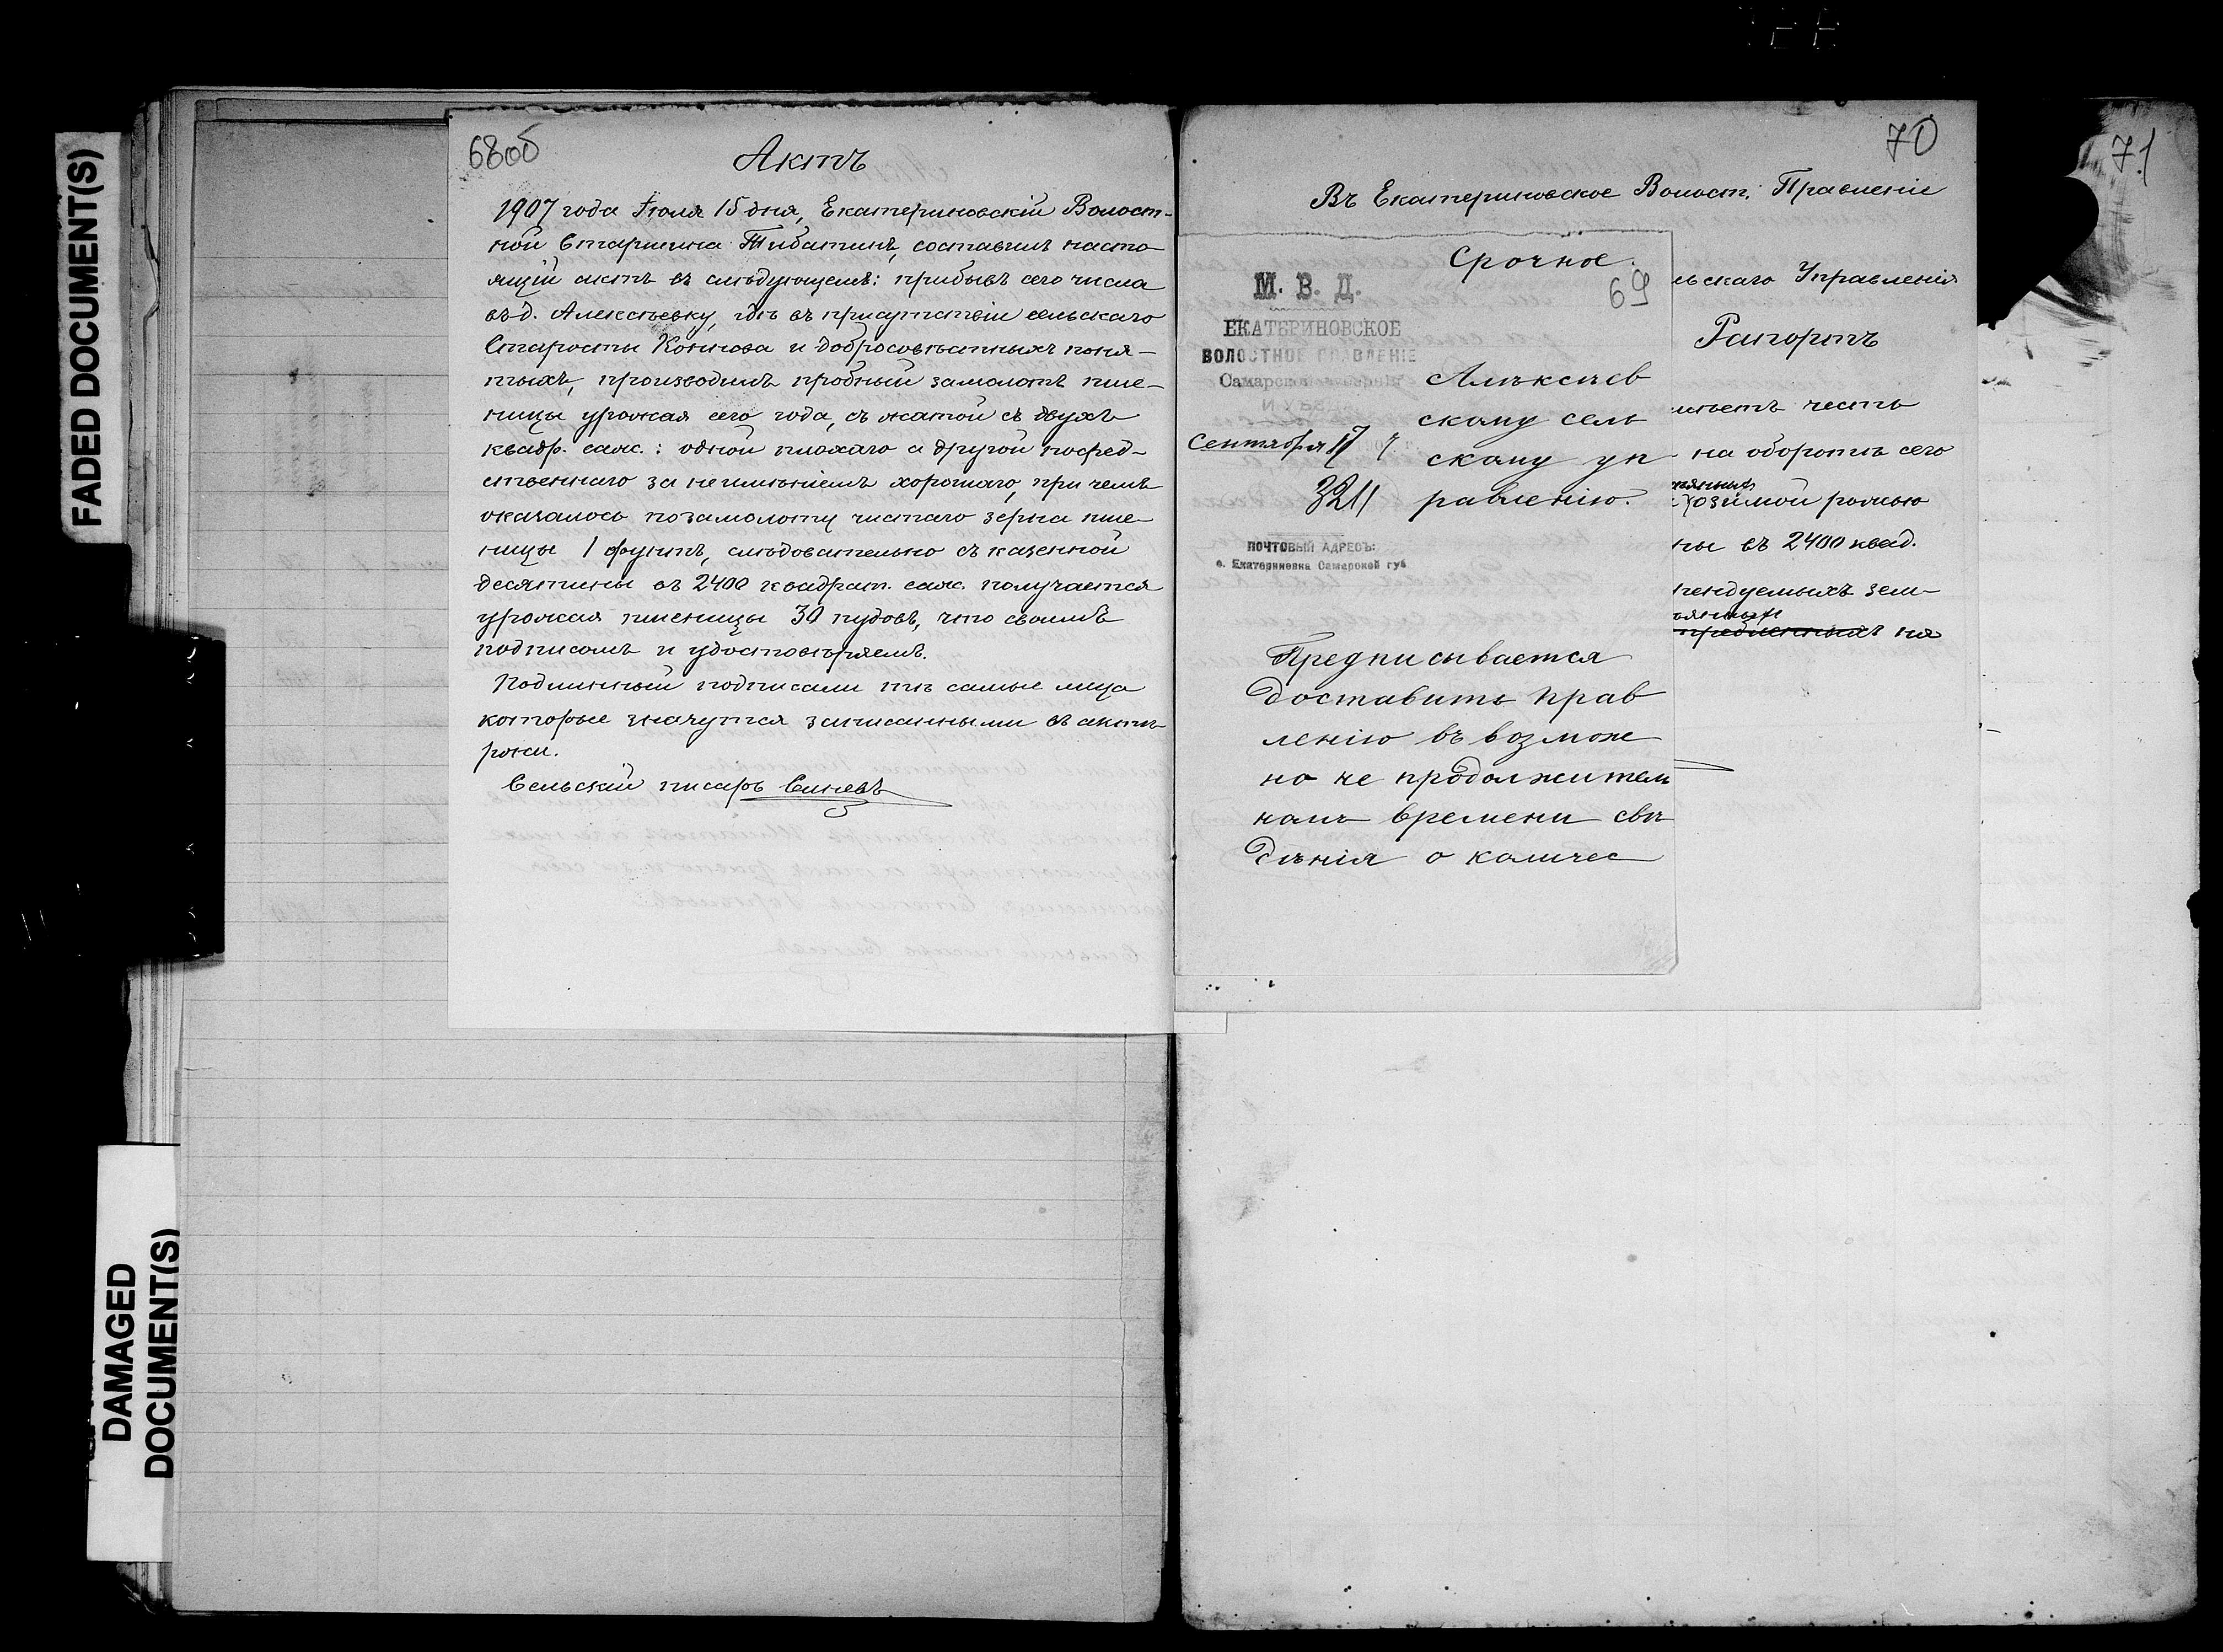 FADED DOCUMENT(S)
DAMAGED
DOCUMENT(S)
68об
Актъ
1907 года Іюля 15 дня, Екатериновскій Волост-
ной Старшина Тибатинъ, составилъ насто-
ящій актъ въ слѣдующемъ: прибывъ сего числа
въ д. Алексѣевку, гдѣ въ присутствіи сельскаго
Старосты Коннова и добросовѣстныхъ поня-
тыхъ, производилъ пробный замолотъ пше-
ницы урожая сего года, съ жатой съ двухъ
квадр. саж.: одной плохаго а другой посред-
ственнаго за неимѣніемъ хорошаго, при чемъ
оказалось по замолоту чистаго зерна пше-
ницы 1 фунтъ, слѣдовательно съ казенной
десятины въ 2400 квадрат. саж. получается
урожая пшеницы 30 пудовъ, что своимъ
подписомъ и удостовѣряемъ.
Подлинный подписали тѣ самые лица
которые значутся записанными въ актѣ
ржи.
Сельскій писарь Синевъ
70
Въ Екатериновское Волост. Правленіе
льскаго Управленія
Рапортъ
мѣетъ честь
на оборотѣ сего
озимой рожью
ны въ 2400 квад.
рендуемыхъ зем-
на
Срочное.
69
М. В. Д.
ЕКАТЕРИНОВСКОЕ
ВОЛОСТНОЕ ПРАВЛЕНІЕ
Сентября 17 7
3211
ПОЧТОВЫЙ АДРЕСЪ:
с. Екатериновка Самарской губ.
Алѣксѣев
скому сель
скому уп
равленію.
Предписывается
доставить прав
ленію въ возмож
но не продолжитель
номъ времени свѣ
дѣнія о количес
71